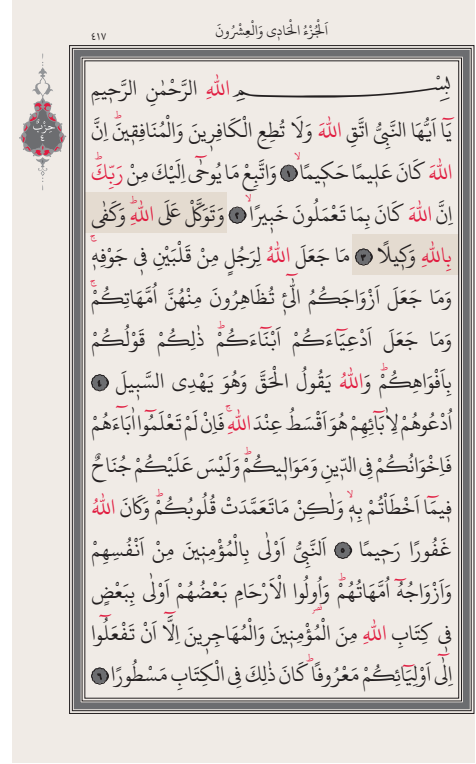 اَلْجُزْءُ الْحَادِى وَالْعِشْرُونَ
٤١٧
حِزْبْ
٤
بِسْــــــــمِ اللهِ الرَّحْمٰنِ الرَّحٖيمِ
يَٓا اَيُّهَا النَّبِىُّ اتَّقِ اللهَ وَلَا تُطِعِ الْكَافِرٖينَ وَالْمُنَافِقٖينَؕ اِنَّ
اللهَ كَانَ عَلٖيمًا حَكٖيمًاۙ ﴿١﴾ وَاتَّبِعْ مَا يُوحٰٓى اِلَيْكَ مِنْ رَبِّكَؕ
اِنَّ اللهَ كَانَ بِمَا تَعْمَلُونَ خَبٖيرًاۙ ﴿٢﴾ وَتَوَكَّلْ عَلَى اللهِؕ وَكَفٰى
بِاللهِ وَكٖيلًا ﴿٣﴾ مَا جَعَلَ اللهُ لِرَجُلٍ مِنْ قَلْبَيْنِ فٖى جَوْفِهٖۚ
وَمَا جَعَلَ اَزْوَاجَكُمُ الّٰٓئٖ تُظَاهِرُونَ مِنْهُنَّ اُمَّهَاتِكُمْۚ
وَمَا جَعَلَ اَدْعِيَٓاءَكُمْ اَبْنَٓاءَكُمْؕ ذٰلِكُمْ قَوْلُكُمْ
بِاَفْوَاهِكُمْؕ وَاللهُ يَقُولُ الْحَقَّ وَهُوَ يَهْدِى السَّبٖيلَ ﴿٤﴾
اُدْعُوهُمْ لِاٰبَٓائِهِمْ هُوَ اَقْسَطُ عِنْدَ اللهِۚ فَاِنْ لَمْ تَعْلَمُٓوا اٰبَٓاءَهُمْ
فَاِخْوَانُكُمْ فِى الدّٖينِ وَمَوَالٖيكُمْؕ وَلَيْسَ عَلَيْكُمْ جُنَاحٌ
فٖيمَٓا اَخْطَأْتُمْ بِهٖۙ وَلٰكِنْ مَا تَعَمَّدَتْ قُلُوبُكُمْؕ وَكَانَ اللهُ
غَفُورًا رَحٖيمًا ﴿٥﴾ اَلنَّبِىُّ اَوْلٰى بِالْمُؤْمِنٖينَ مِنْ اَنْفُسِهِمْ
وَاَزْوَاجُهُٓ اُمَّهَاتُهُمْؕ وَاُولُوا الْاَرْحَامِ بَعْضُهُمْ اَوْلٰى بِبَعْضٍ
فٖى كِتَابِ اللهِ مِنَ الْمُؤْمِنٖينَ وَالْمُهَاجِرٖينَ اِلَّٓا اَنْ تَفْعَلُٓوا
اِلٰٓى اَوْلِيَٓائِكُمْ مَعْرُوفًاؕ كَانَ ذٰلِكَ فِى الْكِتَابِ مَسْطُورًا ﴿٦﴾